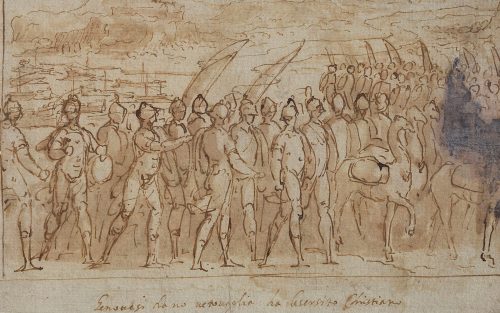 Genouesi da no uetouaglia da lesersito Christiano